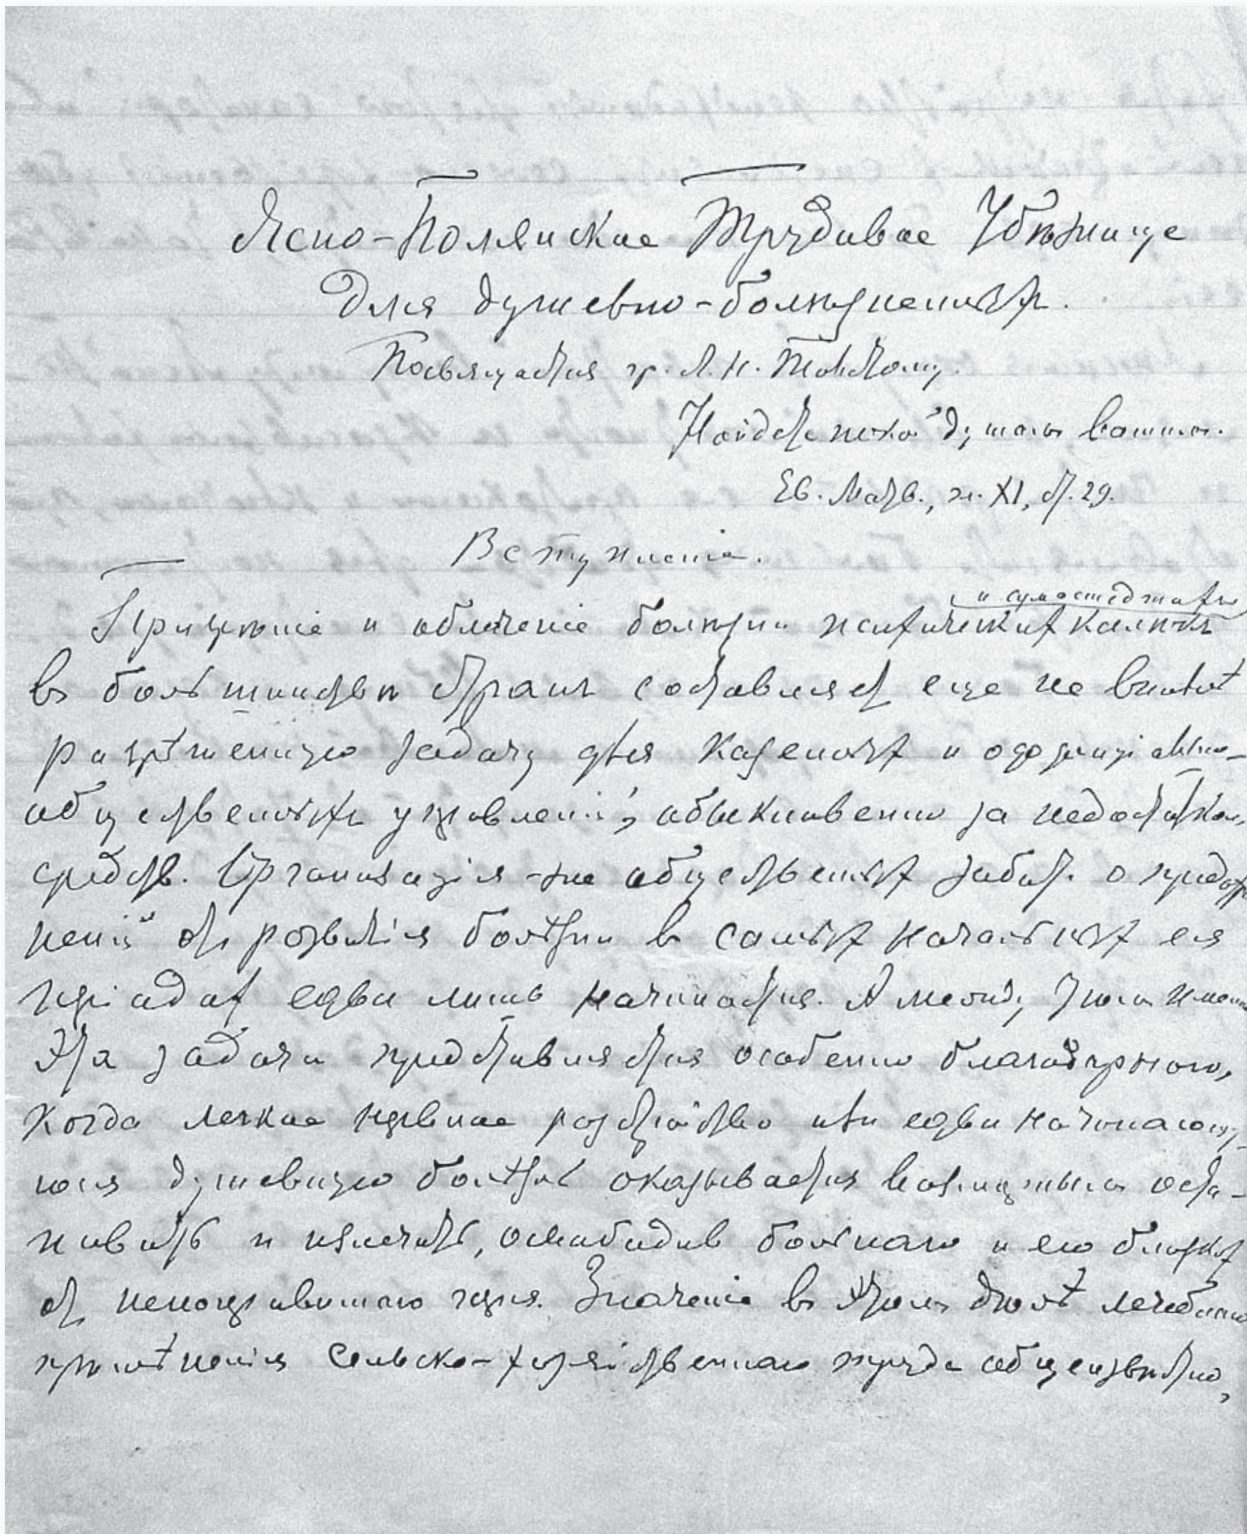 Ясно-Полянское Трудовое Убѣжище
для душевно-болѣзненныхъ.
Посвящается гр. Л. Н. Толстому.
Найдете покой душамъ вашимъ.
Ев. Матѳ., гл. XI, ст. 29.
Вступленіе.
и сумасшедшихъ
Призрѣніе и облегченіе болѣзни психическихъ калѣкъ
въ большинствѣ странъ составляетъ еще не вполнѣ
разрѣшенную задачу для казенныхъ и
общественныхъ управленій, обыкновенно за недостаткомъ
средствъ. Организація-же общественныхъ заботъ о
отъ развитія болѣзни въ самыхъ начальныхъ ея
періодахъ едва лишь начинается. А между тѣмъ именно
эта задача представляется особенно благотворною,
когда легкое нервное разстройство или едва начинающу-
юся душевную болѣзнь оказывается возможнымъ оста-
новить и излечить, освободивъ больнаго и его близкихъ
отъ непоправимаго горя. Значеніе въ этомъ дѣлѣ лечебнаго
примѣненія сельско-хозяйственнаго труда общеизвѣстно,